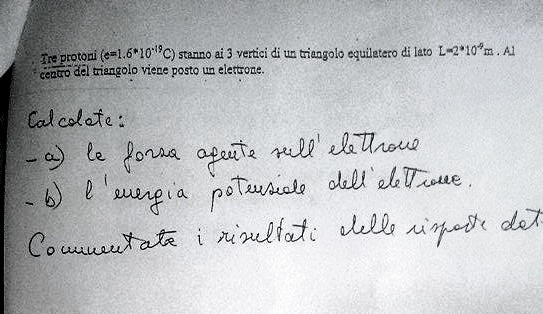 Tre protoni (e=1.6*10⁻¹⁹C) stanno ai 3 vertici di un triangolo equilatero di lato L=2*10⁻⁹m . Al
centro del triangolo viene posto un elettrone.
Calcolate:
- a) la forza agente sull'elettrone
- b) l'energia potenziale dell'elettrone.
Commentate i risultati delle risposte dat